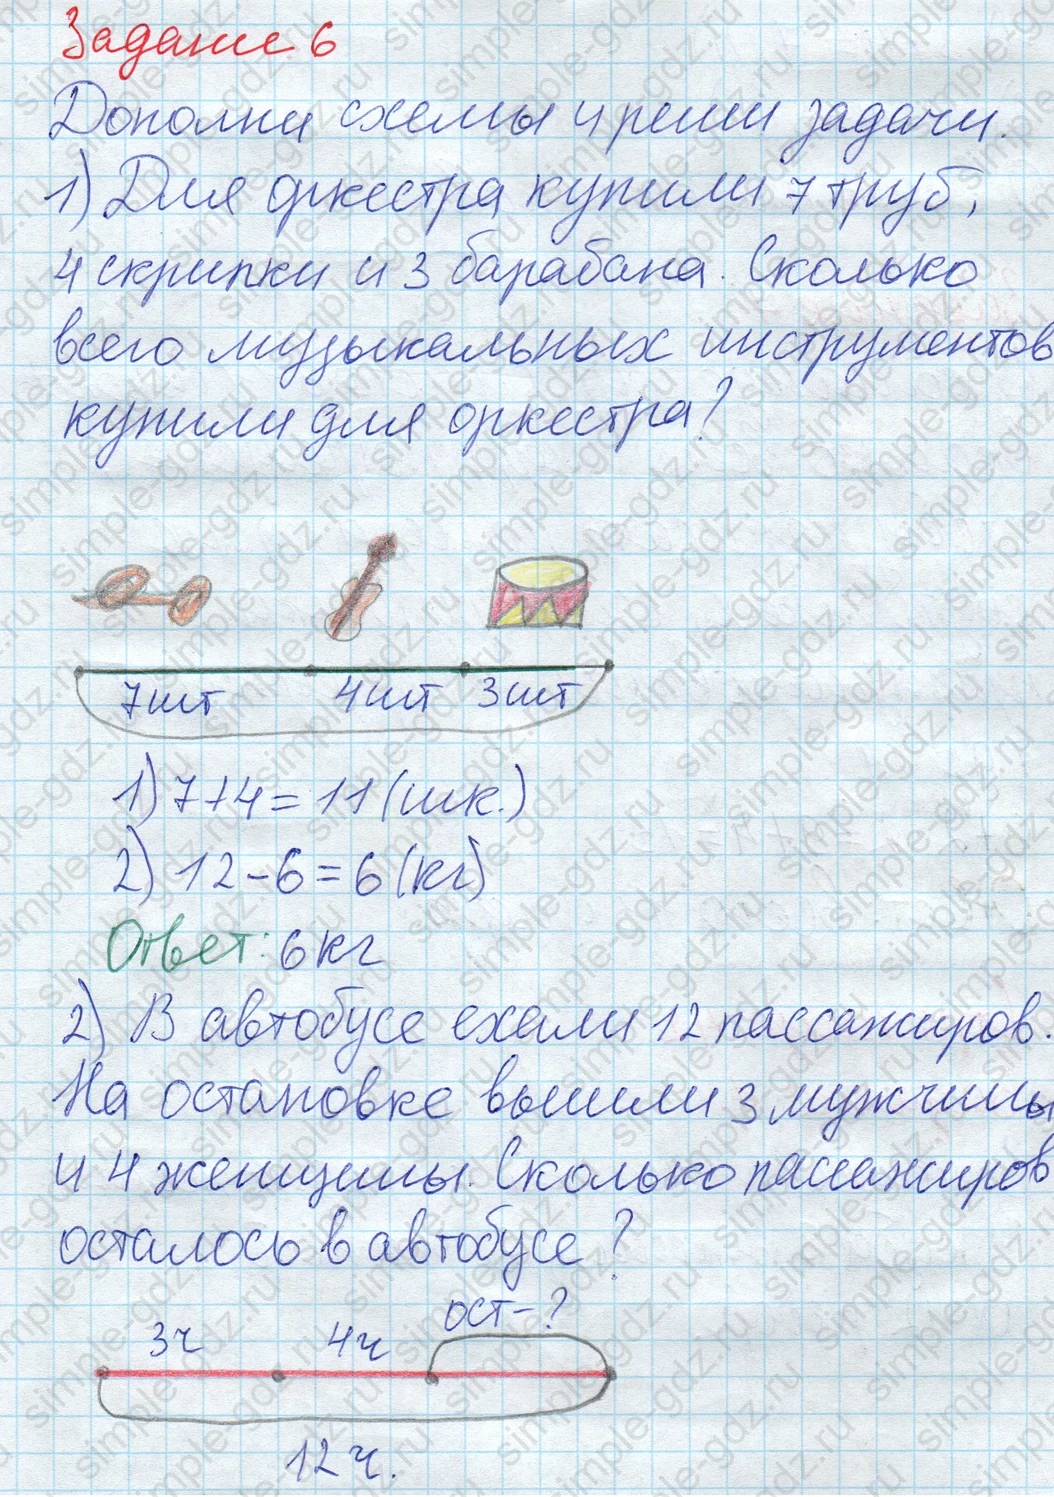 Задание 6
Дополни схемы и реши задачи.
1) Для оркестра купили 7 труб,
4 скрипки и 3 барабана. Сколько
всего музыкальных инструментов
купили для оркестра?
7шт 4шт 3шт
1) 7+4=11(шк.)
2) 12-6=6(кг)
Ответ: 6кг
2) В автобусе ехали 12 пассажиров.
На остановке вышли 3 мужчины
и 4 женщины. Сколько пассажиров
осталось в автобусе?
ост-?
3ч 4ч
12ч.
simple-gdz.ru